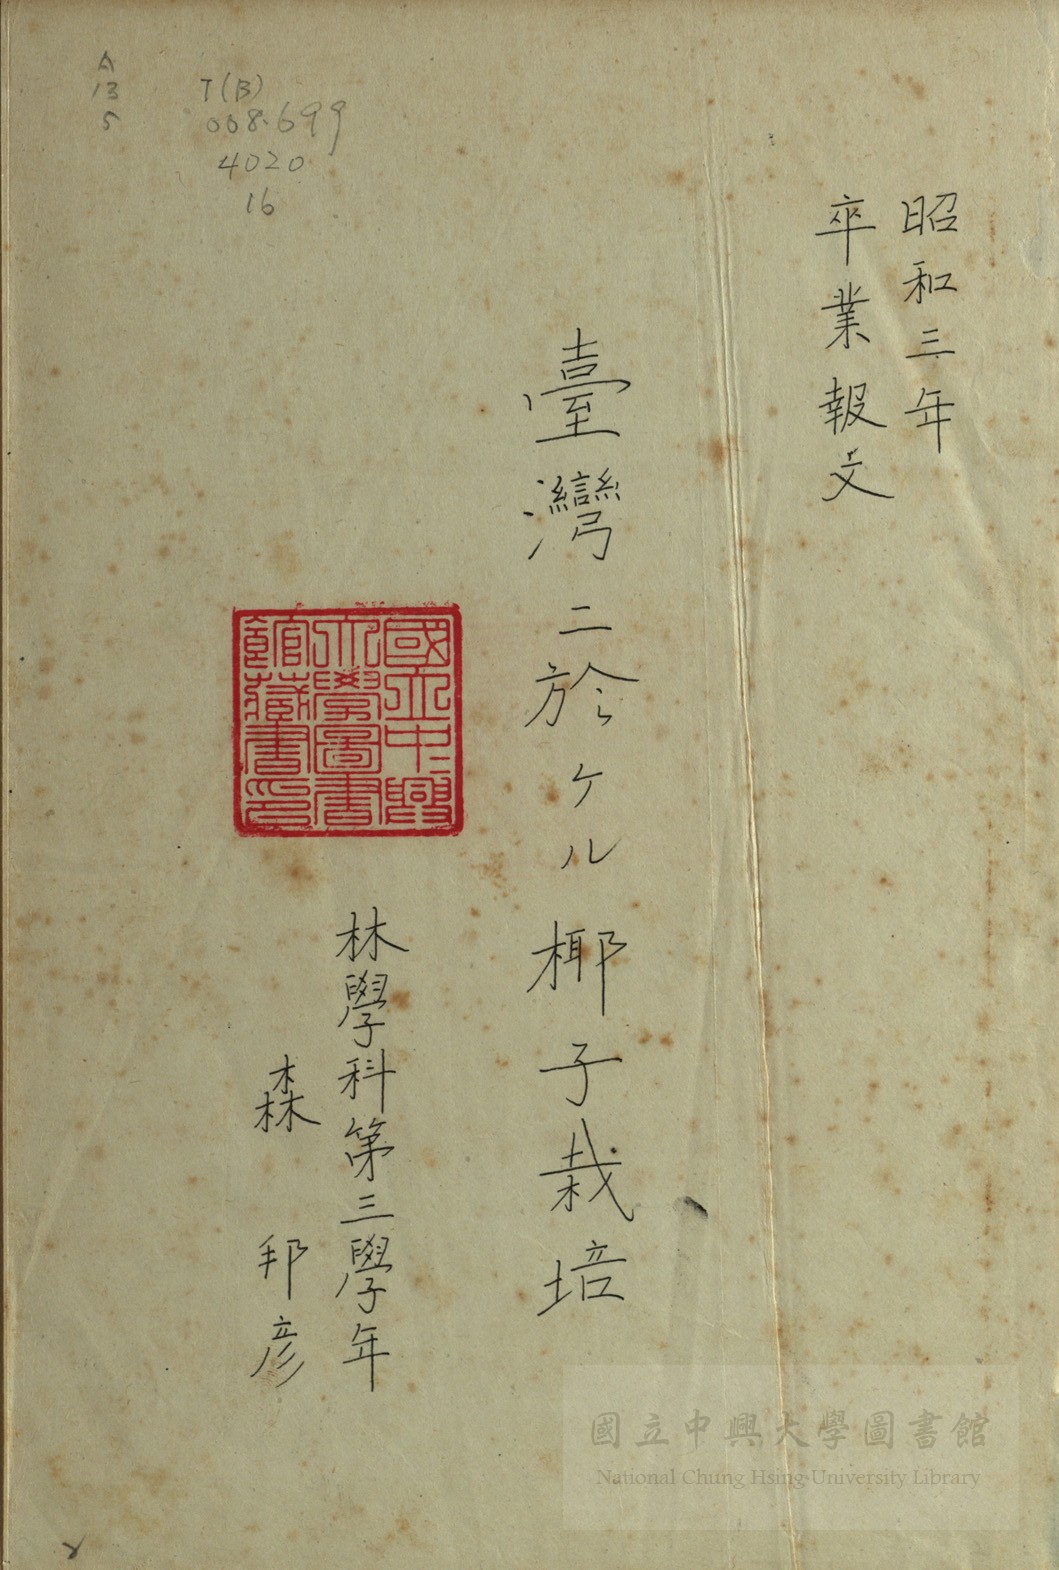 昭和三年
卒業報文
臺灣ニ於ケル椰子栽培
林學科第三學年
森邦彦
國立中興
大學圖書
館藏書印
A
13
5
T(B)
008.699
4020
16
國立中興大學圖書館
National Chung Hsing University Library